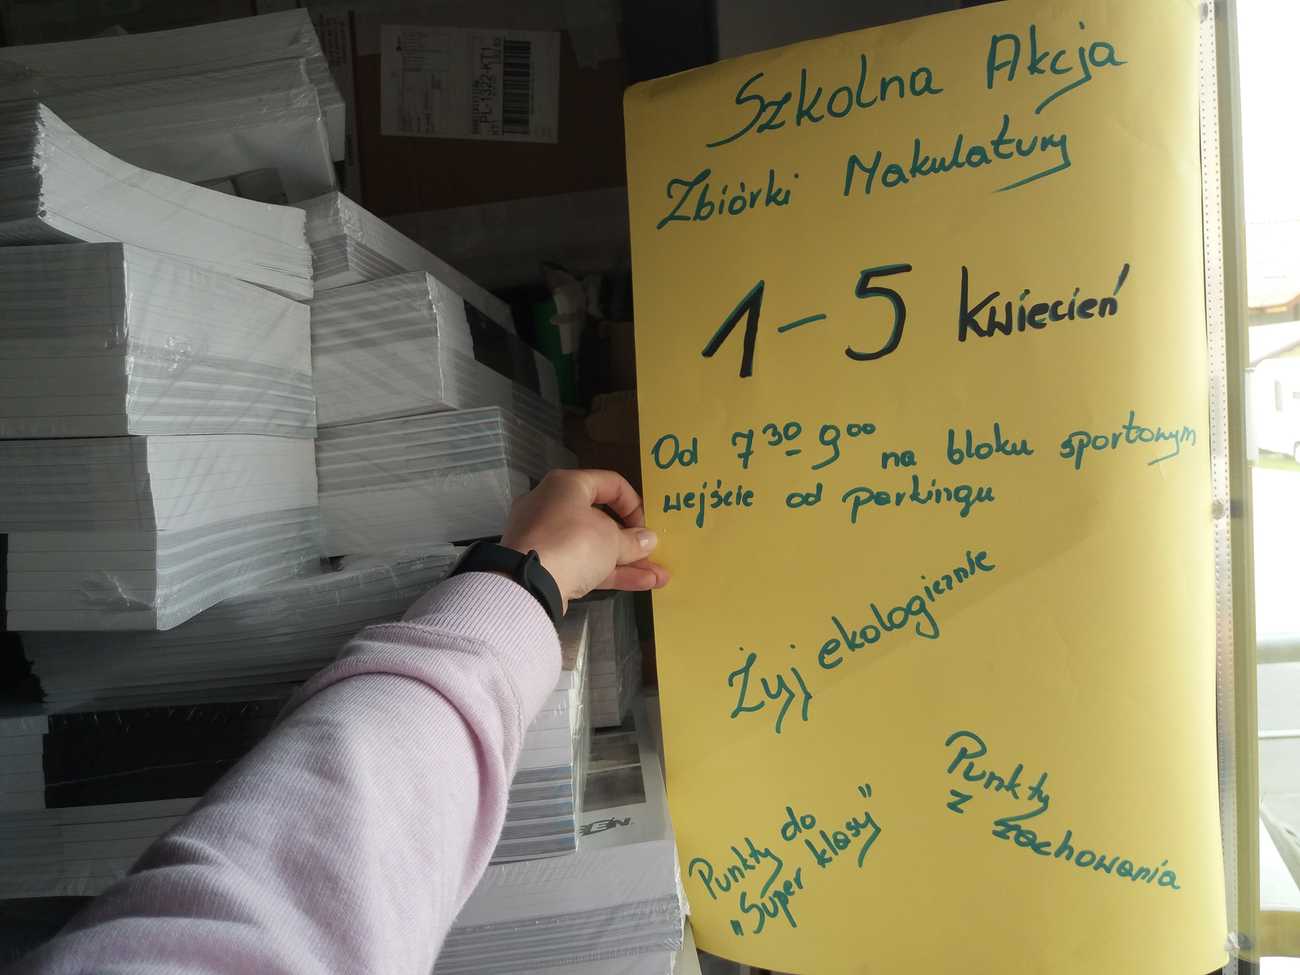 PL-1322-KT1
Szkolna Akcja
Zbiórki Makulatury
1-5 kwiecień
Od 7 30 - 9 00 na bloku sportowym
wejście od parkingu
Żyj ekologicznie
Punkty do
„Super klasy”
Punkty
z zachowania